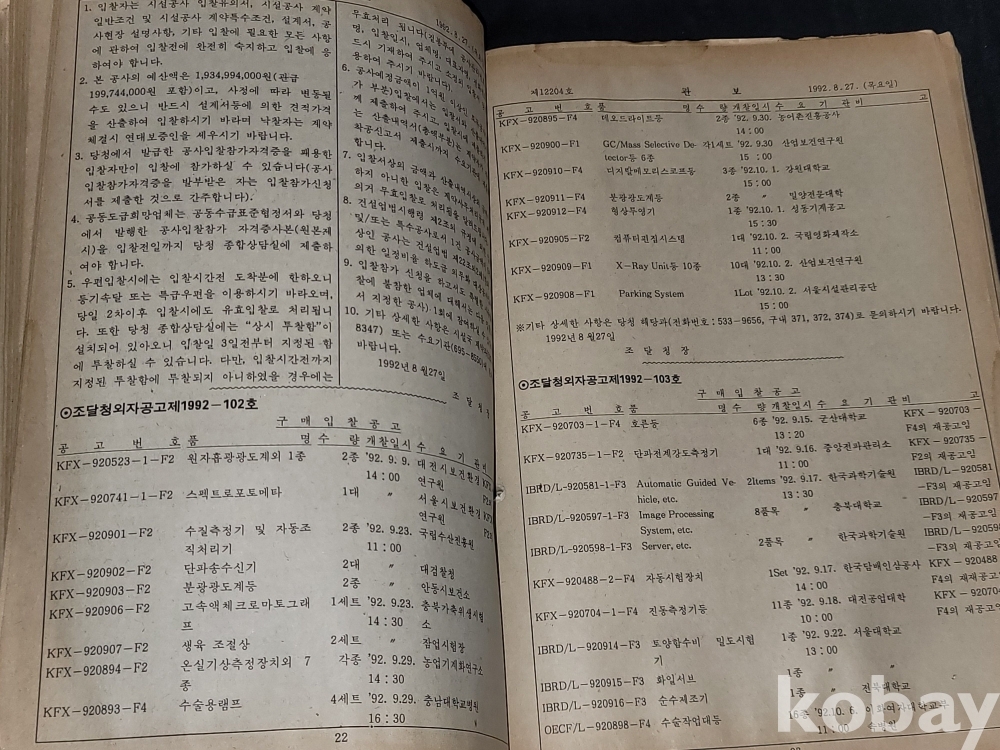 1. 입찰자는 시설공사 입찰유의서, 시설공사 계약
일반조건 및 시설공사 계약특수조건, 설계서, 공
사현장 설명사항, 기타 입찰에 필요한 모든 사항
에 관하여 입찰전에 완전히 숙지하고 입찰에 응
하여야 합니다.
2. 본 공사의 예산액은 1,934,994,000원(관급
199,744,000원 포함)이고, 사정에 따라 변동될
수도 있으니 반드시 설계서등에 의한 견적가격
을 산출하여 입찰하시기 바라며 낙찰자는 계약
체결시 연대보증인을 세우시기 바랍니다.
3. 당청에서 발급한 공사입찰참가자격증을 패용한
입찰자만이 입찰에 참가하실 수 있습니다(공사
입찰참가자격증을 발부받은 자는 입찰참가신청
서를 제출한 것으로 간주합니다).
4. 공동도급희망업체는 공동수급표준협정서와 당청
에서 발행한 공사입찰참가 자격증사본(원본제
시)을 입찰전일까지 당청 종합상담실에 제출하
여야 합니다.
5. 우편입찰시에는 입찰시간전 도착분에 한하오니
등기속달 또는 특급우편을 이용하시기 바라오며,
당일 2차이후 입찰시에도 유효입찰로 처리됩니
다. 또한 당청 종합상담실에는 "상시 투찰함"이
설치되어 있아오니 입찰일 3일전부터 지정된 함
에 투찰하실 수 있습니다. 다만, 입찰시간전까지
지정된 투찰함에 투찰되지 아니하였을 경우에는
무효처리 됩니다
명, 입찰일시, 업체명, 대표자명,
드시 기재하여 주시고
용하여 주시기 바랍니다).
6. 공사예정금액이 1억원 이상인
가 부분)입찰에서는 입찰서와
께 제출하여 주시고,
는 산출내역서(총액부분)는
착공신고서 제출시까지 수요기관에
합니다.
7. 입찰서상의 금액과 산출내역서상의
하지 아니한 입찰은
의거 무효입찰로 처리됨을
8. 건설업법시행령 제2조의
및/또는 특수공사로서 1건 공사
상인 공사는 건설업법 제22조
의한 일정비율 하도급 의무화
9. 입찰참가 신청을 하고서도
찰에 불참한 업체에 대해서는
서 지정한 공사) 1회에 참여하실 수
10. 기타 상세한 사항은 시설국
8347) 또는 수요기관(695-8550)
바랍니다.
1992년 8월27일
조 달 청
⊙조달청외자공고제1992－102호
구 매 입 찰 공 고
공 고 번 호 품 명 수 량 개찰일시 수 요 기 관 비
KFX－920523－1－F2 원자흡광광도계외 1종 2종 '92. 9. 9. 대전시보건환경
14 : 00 연구원
KFX－920741－1－F2 스펙트로포토메타 1대 〃 서울시보건환경
연구원
KFX－920901－F2 수질측정기 및 자동조 2종 '92. 9.23. 국립수산진흥원
직처리기 11 : 00
KFX－920902－F2 단파송수신기 2대 〃 대검찰청
KFX－920903－F2 분광광도계등 2종 〃 안동시보건소
KFX－920906－F2 고속액체크로마토그래 1세트 '92. 9.23. 충북가축위생시험
프 14 : 30 소
KFX－920907－F2 생육 조절상 2세트 〃 잠업시험장
KFX－920894－F2 온실기상측정장치외 7 각종 '92. 9.29. 농업기계화연구소
종 14 : 30
KFX－920893－F4 수술용램프 4세트 '92. 9.29. 충남대학교병원
16 : 30
22
제12204호 관 보 1992. 8.27. (목요일)
공 고 번 호 품 명 수 량 개찰일시 수 요 기 관 비 고
KFX－920895－F4 데오드라이트등 2종 '92. 9.30. 농어촌진흥공사
14 : 00
KFX－920900－F1 GC/Mass Selective De- 각1세트 '92. 9.30 산업보건연구원
tector등 6종 15 : 00
KFX－920910－F4 디지탈메모리스코프등 3종 '92.10. 1. 강원대학교
15 : 00
KFX－920911－F4 분광광도계등 2종 〃 밀양전문대학
KFX－920912－F4 형상투영기 1종 '92.10. 1. 성동기계공고
15 : 30
KFX－920905－F2 컴퓨터편집시스템 1대 '92.10. 2. 국립영화제작소
11 : 00
KFX－920909－F1 X－Ray Unit등 10종 10대 '92.10. 2. 산업보건연구원
13 : 30
KFX－920908－F1 Parking System 1Lot '92.10. 2. 서울시설관리공단
15 : 00
※기타 상세한 사항은 당청 해당과(전화번호 : 533－9656, 구내 371, 372, 374)로 문의하시기 바랍니다.
1992년 8월27일
조 달 청 장
⊙조달청외자공고제1992－103호
구 매 입 찰 공 고
공 고 번 호 품 명 수 량 개찰일시 수 요 기 관 비 고
KFX－920703－1－F4 호른등 6종 '92. 9.15. 군산대학교 KFX－920703－
13 : 20 F4의 재공고임
KFX－920735－1－F2 단파전계강도측정기 1대 '92. 9.16. 중앙전파관리소 KFX－920735－
11 : 00 F2의 재공고임
IBRD/L-920581-1-F3 Automatic Guided Ve- 2Items '92. 9.17. 한국과학기술원 IBRD/L-920581
hicle, etc. 13 : 30 －F3의 재공고임
IBRD/L-920597-1-F3 Image Processing 8품목 〃 충북대학교 IBRD/L-920597
System, etc. －F3의 재공고임
IBRD/L-920598-1-F3 Server, etc. 2품목 〃 한국과학기술원 IBRD/L-920598
－F3의 재공고임
KFX－920488－2－F4 자동시험장치 1Set '92. 9.17. 한국담배인삼공사 KFX－920488
14 : 00 F4의 재재공고임
KFX－920704－1－F4 진동측정기등 11종 '92. 9.18. 대전공업대학 KFX－92070
10 : 00 F4의 재공고임
IBRD/L－920914－F3 토양함수비 밀도시험 1종 '92. 9.22. 서울대학교
기 13 : 00
IBRD/L－920915－F3 화일서브 1종 〃 〃
IBRD/L－920916－F3 순수제조기 1종 〃 전북대학교
OECF/L－920898－F4 수술작업대등 16종 '92.10. 6. 이화여자대학교부
11 : 00 속병원
kobay